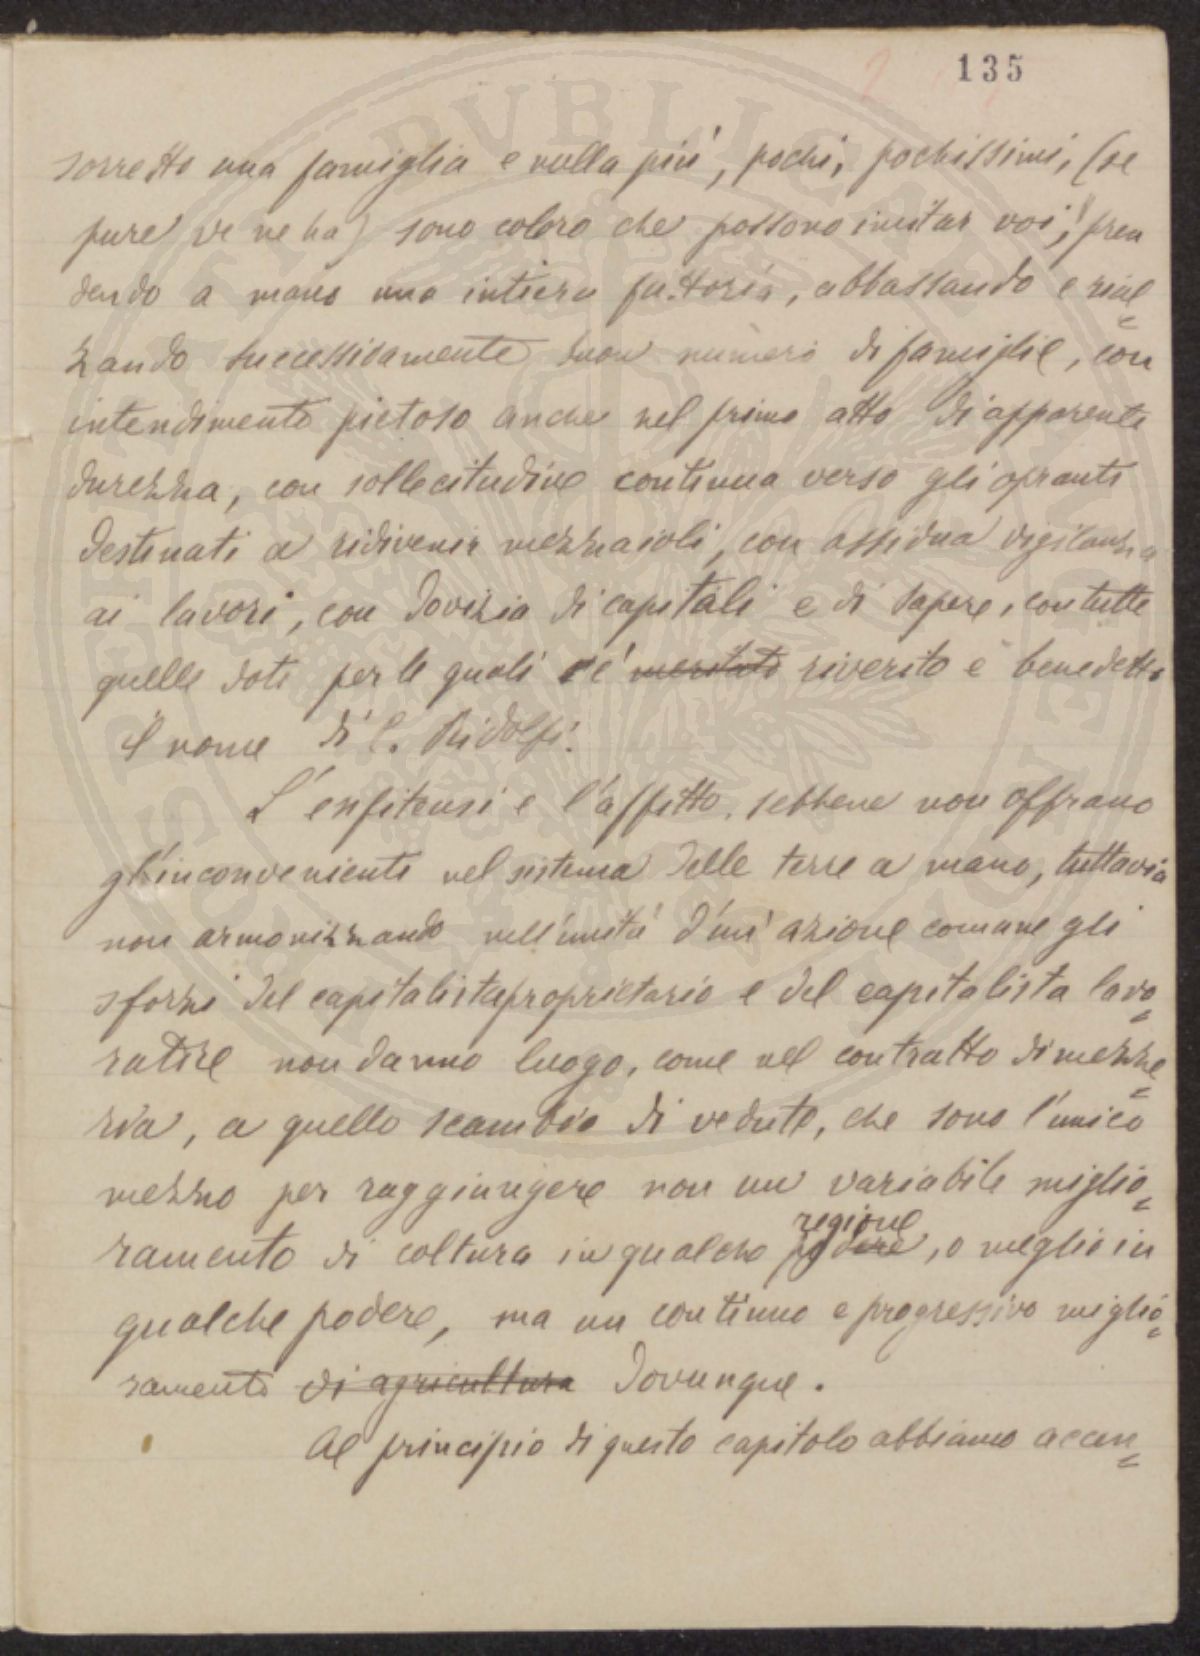 135
sorretto una famiglia e nulla più, pochi, pochissimi, (se
pure ve ne ha) sono coloro che possono imitar voi, pren
dendo a mano una intiera fattoria, abbassando e rial=
zando successivamente buon numero di famiglie, con
intendimento pietoso anche nel primo atto di apparente
durezza, con sollecitudine continua verso gli opranti
destinati a ridivenir mezzaioli, con assidua vigilanza
ai lavori, con dovizia di capitali e di sapere, con tutte
quelle doti per le quali è meritato riverito e benedetto
il nome di C. Ridolfi.
L'enfiteusi e l'affitto, sebbene non offrano
gl'inconvenienti nel sistema delle terre a mano, tuttavia
non armonizzando nell'unità d'un'azione comune gli
sforzi del capitalista proprietario e del capitalista lavo=
ratore non danno luogo, come nel contratto di mezze=
ria, a quello scambio di vedute, che sono l'unico
mezzo per raggiungere non un variabile miglio=
regione
ramento di coltura in qualche podere, o meglio in
qualche podere, ma un continuo e progressivo miglio=
ramento di agricultura dovunque.
Al principio di questo capitolo abbiamo accen=
PUBLICAE